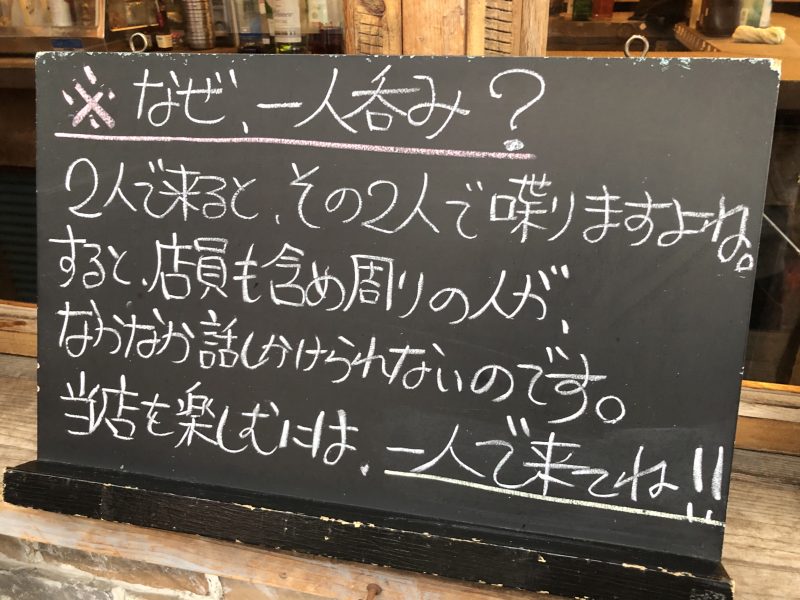 ※ なぜ、一人呑み?
2人で来ると、その2人で喋りますよね。
すると、店員も含め周りの人が、
なかなか話しかけられないのです。
当店を楽しむには、一人で来てね!!